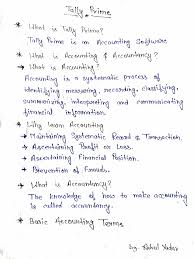 Tally Prime
* What is Tally Prime?
Tally Prime is an Accounting Software
* What is Accounting & Accountancy?
* What is Accounting?
Accounting is a systematic process of
identifying messuring, recording, classifying,
summarizing, interpreting and communicating
financial information.
* Why learn Accounting
→ Maintaining Systematic Record of Transaction.
→ Ascertaining Profit or Loss.
→ Ascertaining Financial Position.
→ Prevention of Frauds.
* What is Accountancy?
The knowledge of how to make accounting
is called accountancy.
* Basic Accounting Terms
By- Rahul Yadav